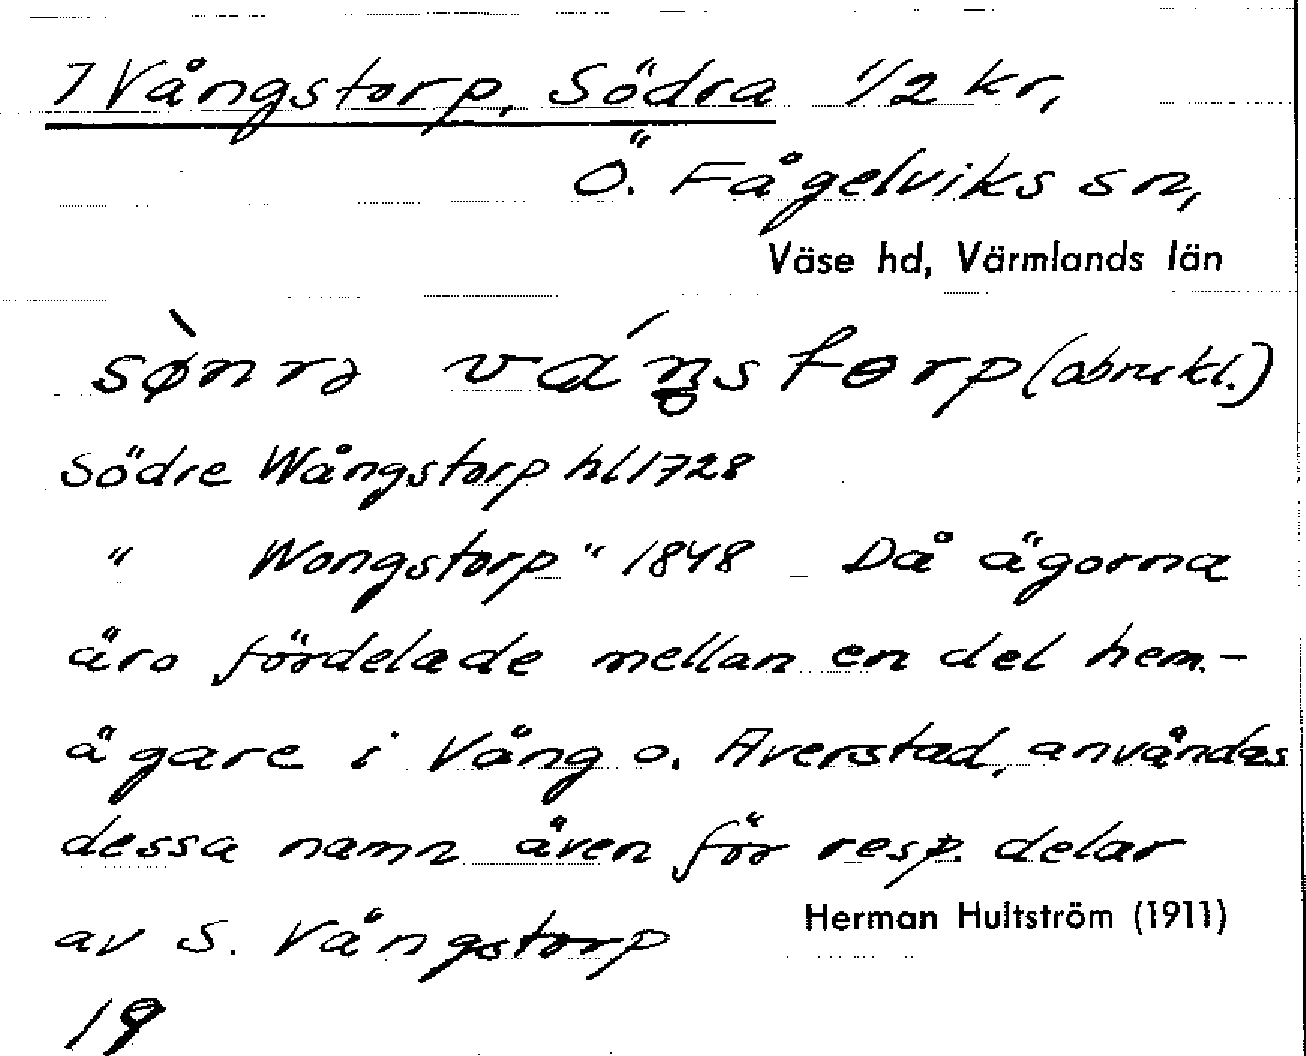 7 Vångstorp, Södra 1/2 kr,
Ö. Fågelviks sn,
Väse hd, Värmlands län
sø̀nrə váŋstorp (obrukl.)
Södre Wångstorp hl 1728
" Wongstorp " 1848 _ Då ägorna
äro fördelade mellan en del hem.-
ägare i Vång o. Averstad, användas
dessa namn även för resp. delar
av S. Vångstorp
Herman Hultström (1911)
19